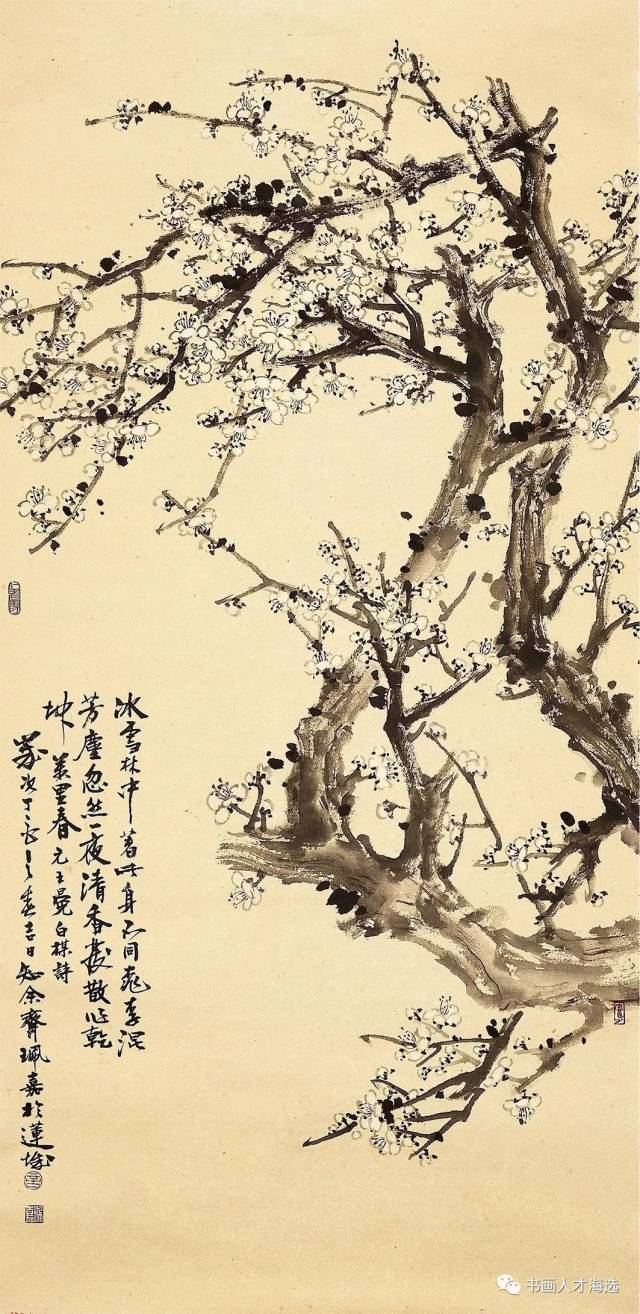 冰雪林中著此身不同桃李混
芳塵忽然一夜清香發散作乾
坤萬里春 元王冕白楳詩
歲次丁亥之春吉日知余齋珮嘉於蓮城
书画人才海选